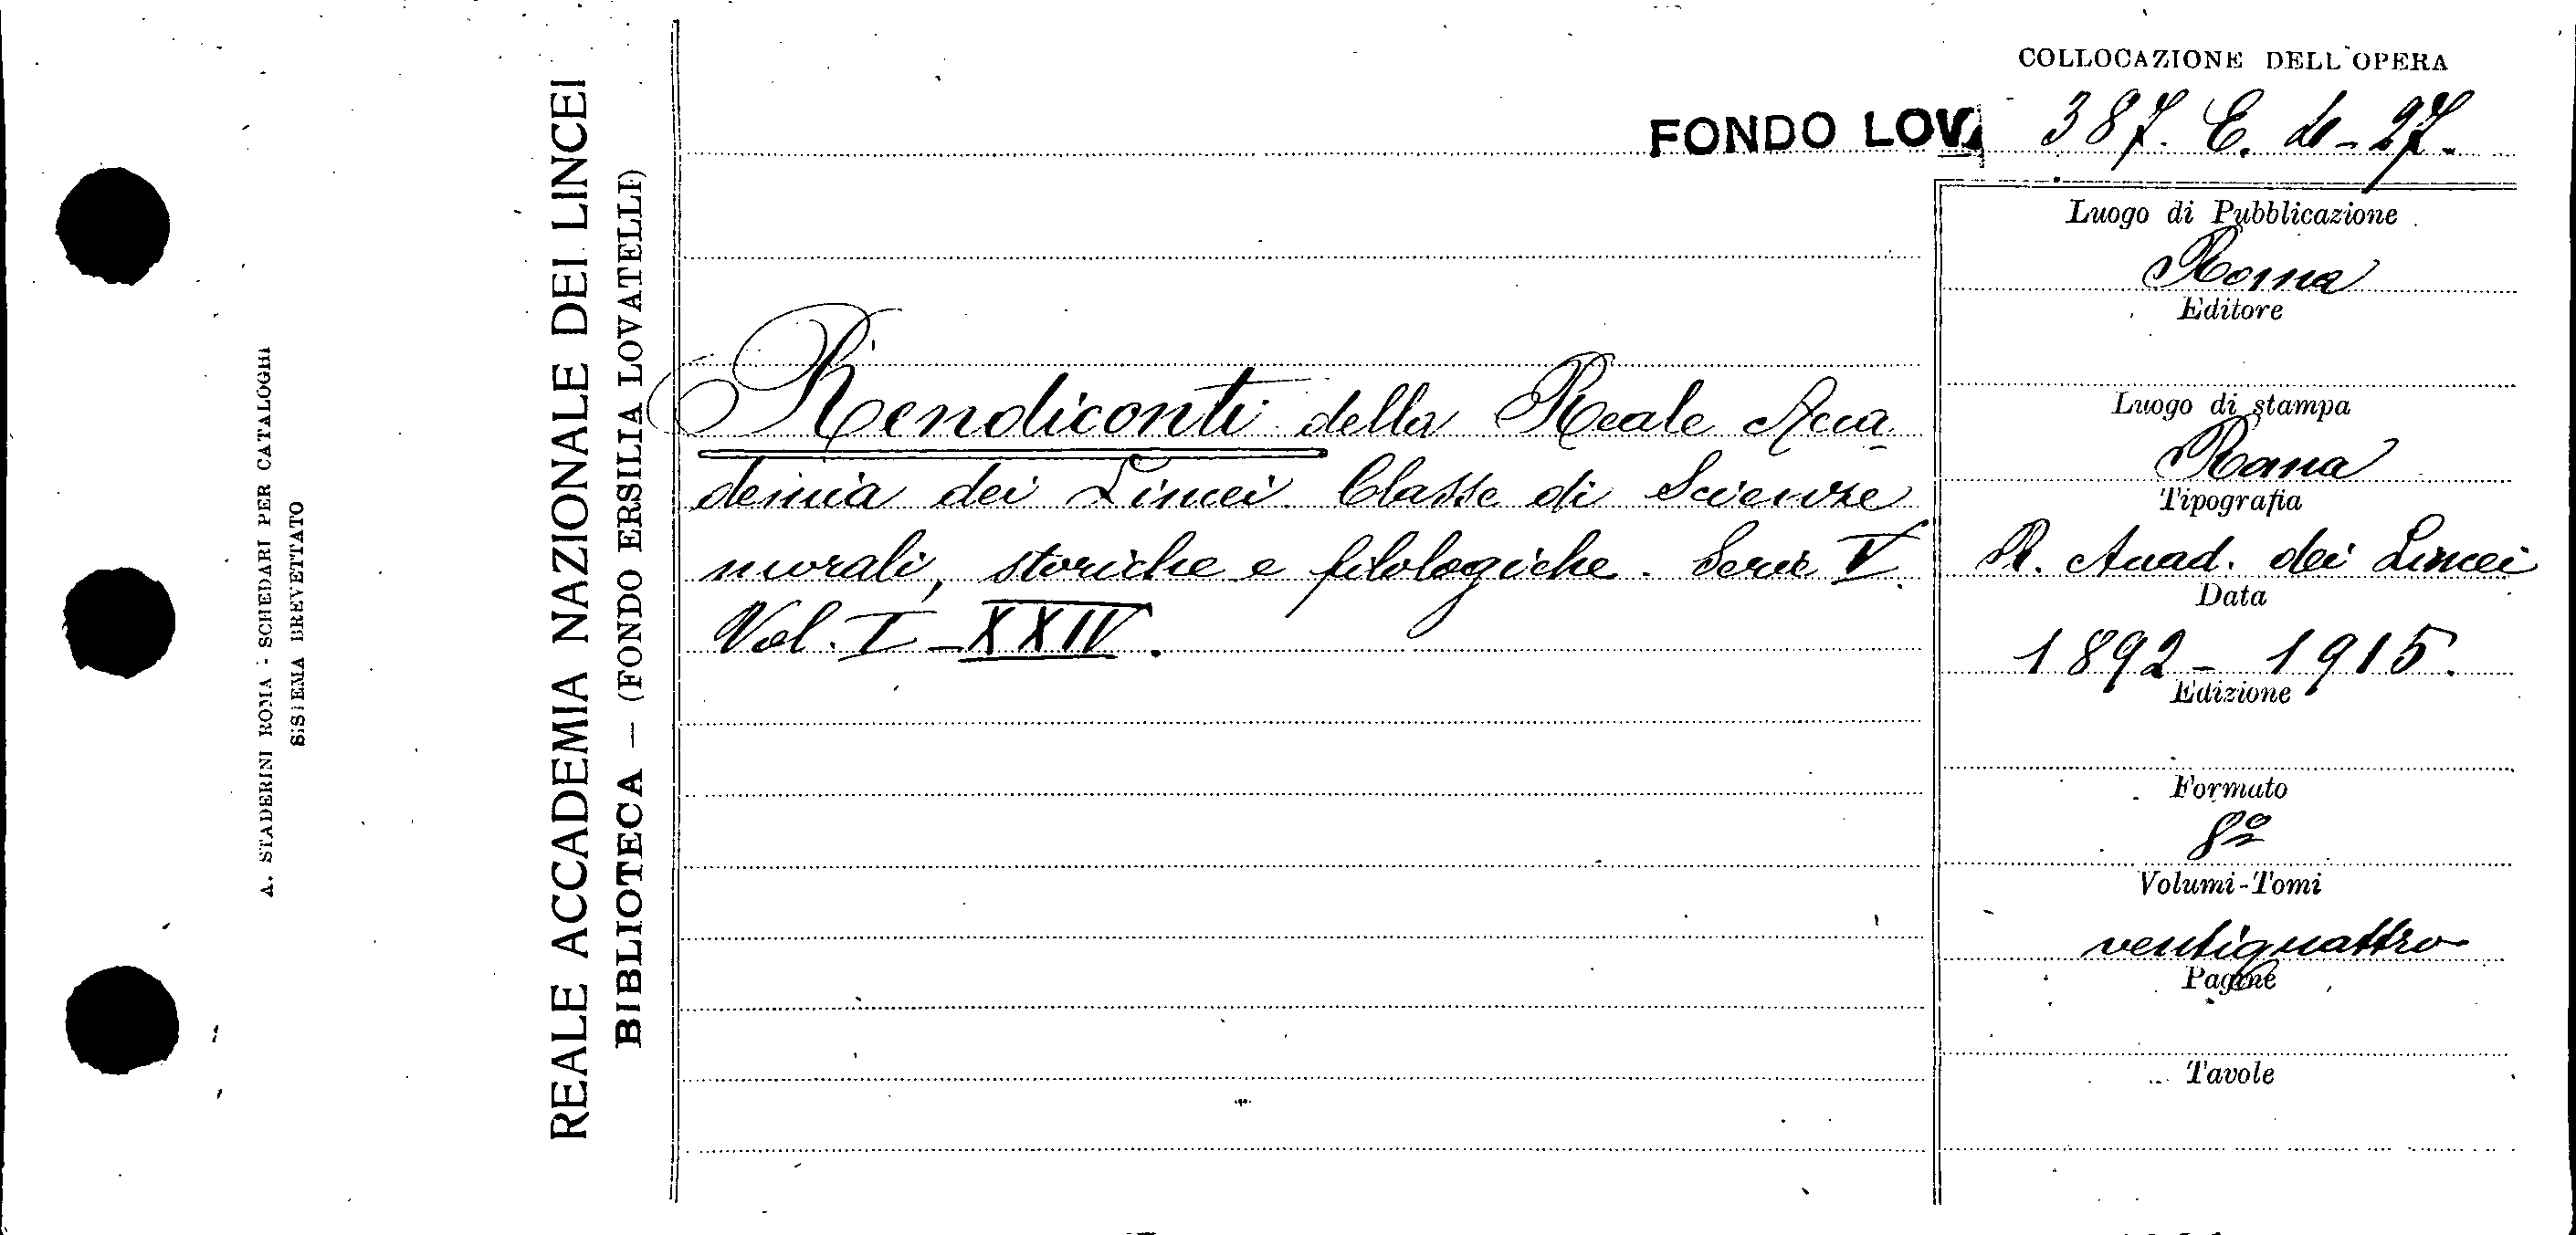 A. STADERINI ROMA - SCHEDARI PER CATALOGHI
SISTEMA BREVETTATO
REALE ACCADEMIA NAZIONALE DEI LINCEI
BIBLIOTECA — (FONDO ERSILIA LOVATELLI)
COLLOCAZIONE DELL'OPERA
FONDO LOV. 387. E. 4-27.
Rendiconti della Reale Acca-
demia dei Lincei. Classe di Scienze
morali, storiche e filologiche. Serie V.
Vol. I-XXIV.
Luogo di Pubblicazione
Roma
Editore
Luogo di stampa
Roma
Tipografia
R. Accad. dei Lincei
Data
1892-1915.
Edizione
Formato
8º
Volumi-Tomi
ventiquattro
Pagine
Tavole